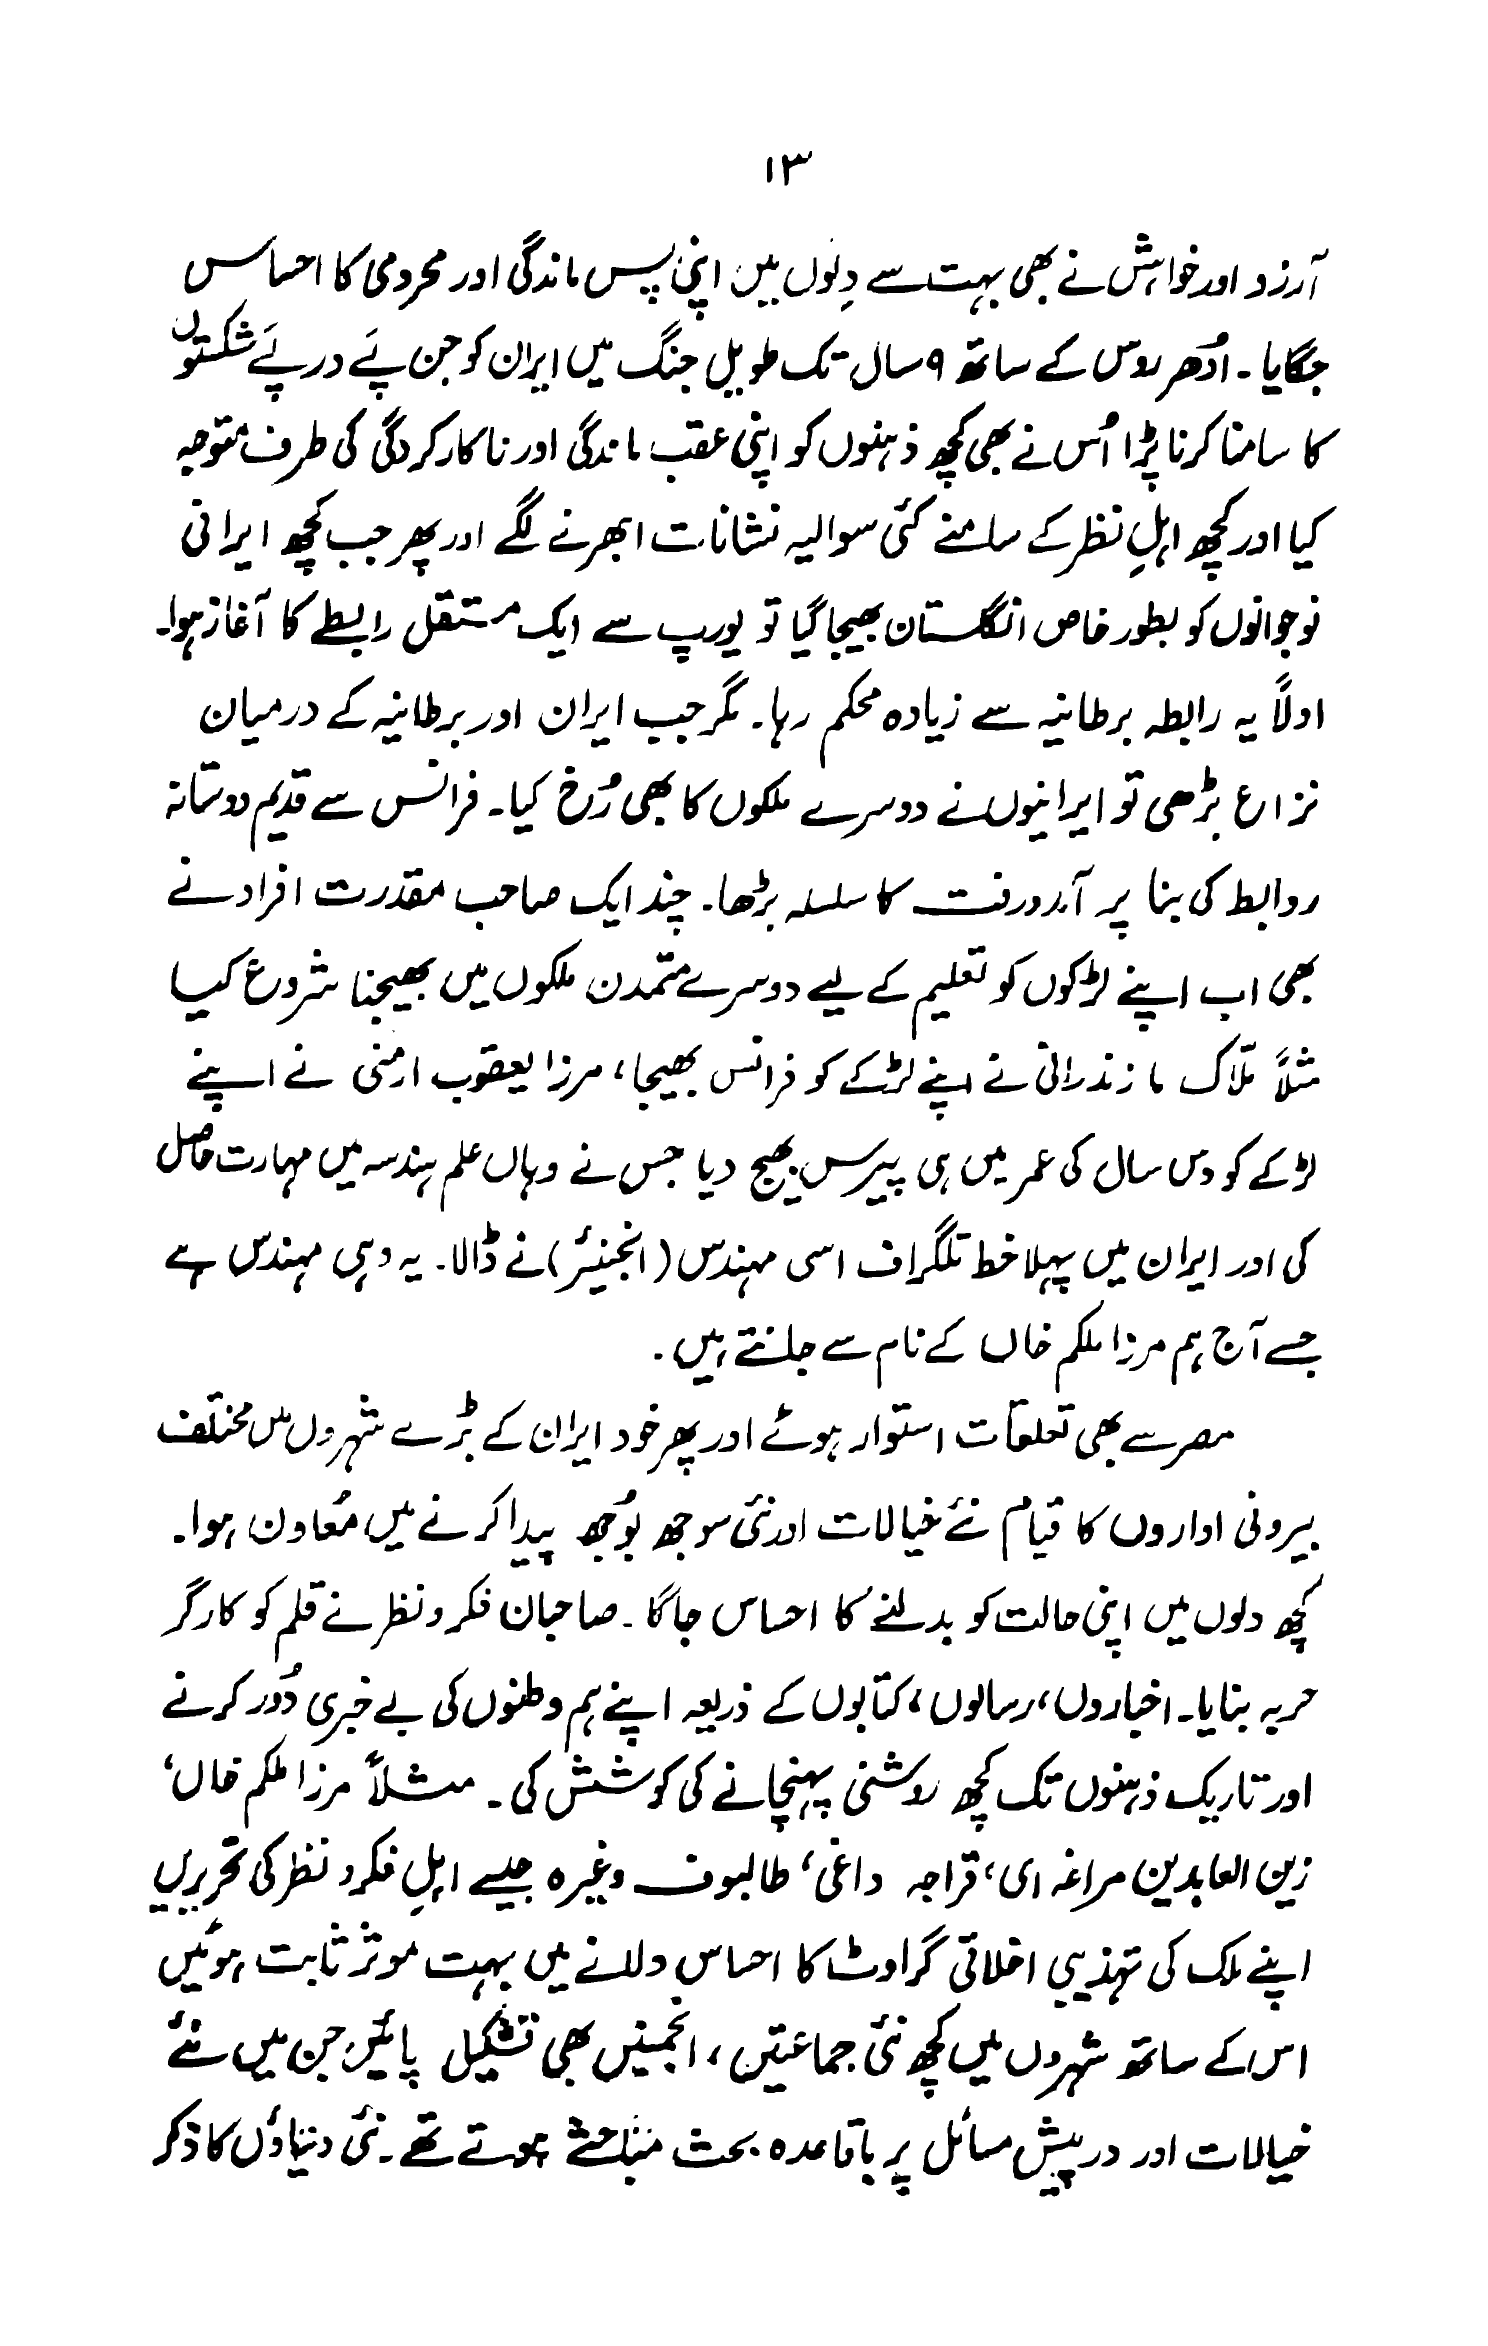 ۱۳
آرزو اور خواہش نے بھی بہت سے دِلوں میں اپنی پس ماندگی اور محرومی کا احساس
جگایا۔ اُدھر روس کے ساتھ ۹ سال تک طویل جنگ میں ایران کو جن پَے در پَے شکستوں
کا سامنا کرنا پڑا اُس نے بھی کچھ ذہنوں کو اپنی عقب ماندگی اور ناکارکردگی کی طرف متوجہ
کیا اور کچھ اہلِ نظر کے سامنے کئی سوالیہ نشانات ابھرنے لگے اور پھر جب کچھ ایرانی
نوجوانوں کو بطور خاص انگلستان بھیجا گیا تو یورپ سے ایک مستقل رابطے کا آغاز ہوا۔
اولاً یہ رابطہ برطانیہ سے زیادہ محکم رہا۔ مگر جب ایران اور برطانیہ کے درمیان
نزاع بڑھی تو ایرانیوں نے دوسرے ملکوں کا بھی رُخ کیا۔ فرانس سے قدیم دوستانہ
روابط کی بنا پر آمدورفت کا سلسلہ بڑھا۔ چند ایک صاحب مقدرت افراد نے
بھی اب اپنے لڑکوں کو تعلیم کے لیے دوسرے متمدن ملکوں میں بھیجنا شروع کیا
مثلاً ملّاک مازندرانی نے اپنے لڑکے کو فرانس بھیجا، مرزا یعقوب ارمنی نے اپنے
لڑکے کو دس سال کی عمر میں ہی پیرس بھیج دیا جس نے وہاں علم ہندسہ میں مہارت حاصل
کی اور ایران میں پہلا خط تلگراف اسی مہندس (انجینئر) نے ڈالا۔ یہ وہی مہندس ہے
جسے آج ہم مرزا ملکم خاں کے نام سے جانتے ہیں۔
مصر سے بھی تعلقات استوار ہوئے اور پھر خود ایران کے بڑے شہروں میں مختلف
بیرونی اداروں کا قیام نئے خیالات اور نئی سوجھ بُوجھ پیدا کرنے میں مُعاون ہوا۔
کچھ دلوں میں اپنی حالت کو بدلنے کا احساس جاگا۔ صاحبان فکر و نظر نے قلم کو کارگر
حربہ بنایا۔ اخباروں، رسالوں، کتابوں کے ذریعہ اپنے ہم وطنوں کی بے خبری دُور کرنے
اور تاریک ذہنوں تک کچھ روشنی پہنچانے کی کوشش کی۔ مثلاً مرزا ملکم خاں،
زین العابدین مراغہ ای، قراجہ داغی، طالبوف وغیرہ جیسے اہلِ فکر و نظر کی تحریریں
اپنے ملک کی تہذیبی اخلاقی گراوٹ کا احساس دلانے میں بہت موثر ثابت ہوئیں
اس کے ساتھ شہروں میں کچھ نئی جماعتیں، انجمنیں بھی تشکیل پائیں جن میں نئے
خیالات اور درپیش مسائل پر باقاعدہ بحث مباحثے ہوتے تھے۔ نئی دنیاؤں کا ذکر